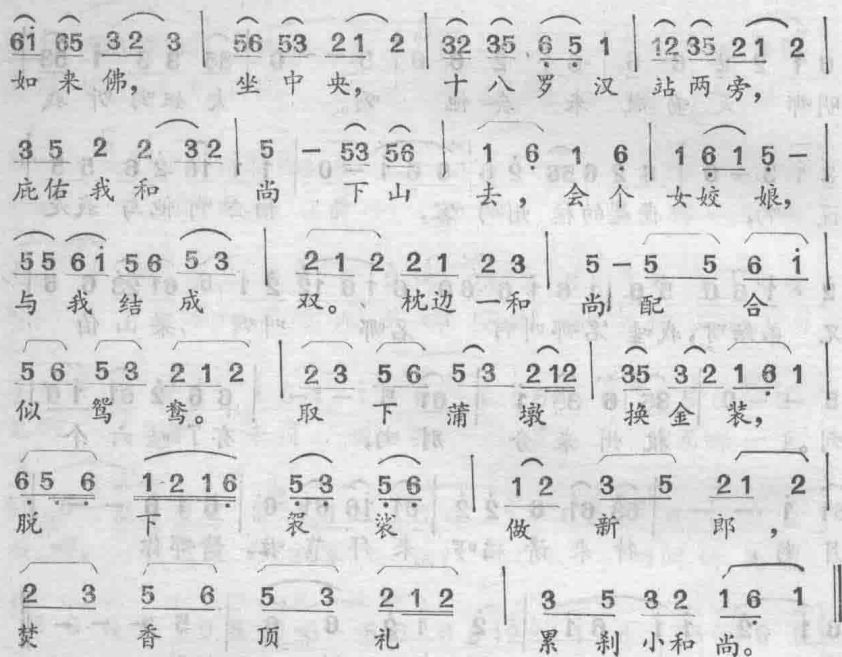 6i 65 32 3 | 56 53 21 2 | 32 35 6 5 1 | 12 35 21 2 |
如来佛， 坐中央， 十八罗汉 站两旁，
3 5 2 2 32 | 5 - 53 56 | 1 6 1 6 | 1 6 1 5 - |
庇佑我和 尚 下山 去，会个 女姣娘，
55 6i 56 53 | 21 2 21 23 | 5 - 5 5 6 i |
与我结成 双。枕边一和 尚配合
56 53 21 2 | 23 56 53 212 | 35 32 16 1 |
似鸳鸯。 取下蒲墩 换金装，
6 5 6 1216 53 56 | 12 3 5 21 2 |
脱下袈裟 做新郎，
2 3 5 6 5 3 212 | 3 5 32 16 1 ‖
焚香顶礼 累刹小和尚。